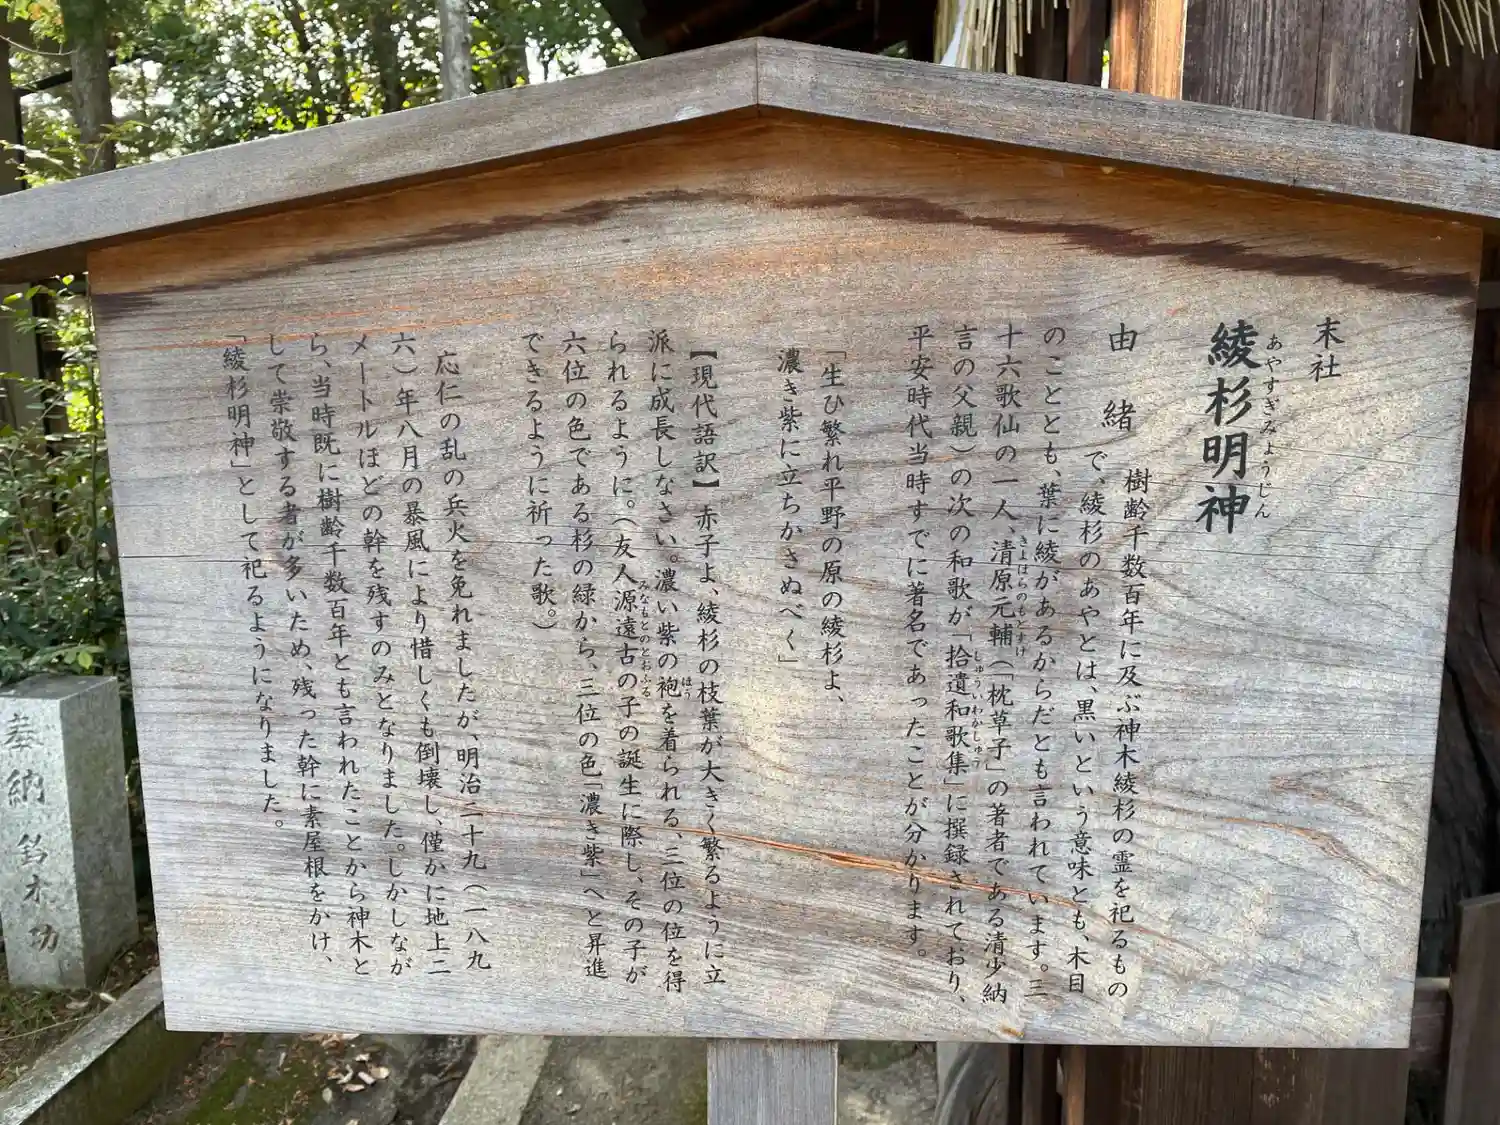 末社
綾杉明神
あやすぎみょうじん
由緒
樹齢千数百年に及ぶ神木綾杉の霊を祀るもの
で、綾杉のあやとは、黒いという意味とも、木目
のこととも、葉に綾があるからだとも言われています。三
十六歌仙の一人、清原元輔（「枕草子」の著者である清少納
きよはらのもとすけ
言の父親）の次の和歌が「拾遺和歌集」に撰録されており、
しゅういわかしゅう
平安時代当時すでに著名であったことが分かります。
「生ひ繁れ平野の原の綾杉よ、
濃き紫に立ちかさぬべく」
【現代語訳】赤子よ、綾杉の枝葉が大きく繁るように立
派に成長しなさい。濃い紫の袍を着られる、三位の位を得
ほう
られるように。（友人源遠古の子の誕生に際し、その子が
みなもとのとおふる
六位の色である杉の緑から、三位の色「濃き紫」へと昇進
できるように祈った歌。）
応仁の乱の兵火を免れましたが、明治二十九（一八九
六）年八月の暴風により惜しくも倒壊し、僅かに地上二
メートルほどの幹を残すのみとなりました。しかしなが
ら、当時既に樹齢千数百年とも言われたことから神木と
して崇敬する者が多いため、残った幹に素屋根をかけ、
「綾杉明神」として祀るようになりました。
奉納 鈴木功